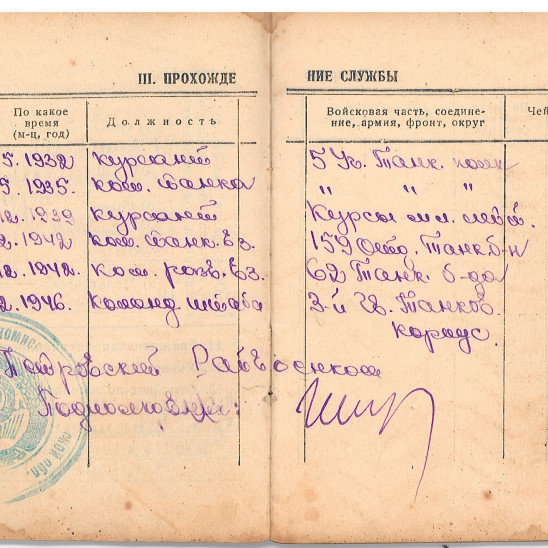 III. ПРОХОЖДЕНИЕ СЛУЖБЫ
По какое время (м-ц, год)
Должность
Войсковая часть, соединение, армия, фронт, округ
Чей
5. 1932 курсант 5 Уч. Танк. полк
5. 1935. ком. танка " " "
12. 1939 курсант Курсы мл. лейт.
2. 1942 ком. танк. вз. 159 Отд. Танк б-н
12. 1942. ком. разв. вз. 62 Танк. б-да
2. 1946. команд. штаба 3-й Гв. Танков. корпус.
Петровский Райвоенком
Подполковник:
ской обл.